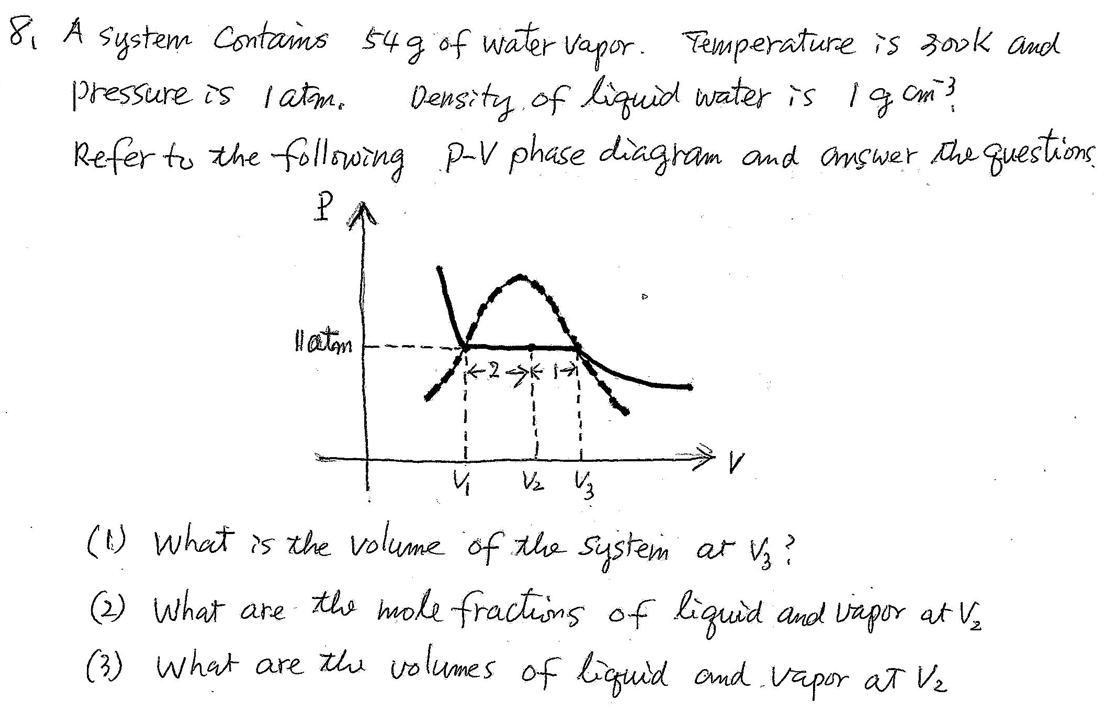 8. A system contains 54 g of water vapor. Temperature is 300K and
pressure is 1 atm. Density of liquid water is 1 g cm⁻³.
Refer to the following P-V phase diagram and answer the questions.
P
1 atm
←2→←1→
V₁ V₂ V₃
V
(1) What is the volume of the system at V₃?
(2) What are the mole fractions of liquid and vapor at V₂
(3) What are the volumes of liquid and vapor at V₂